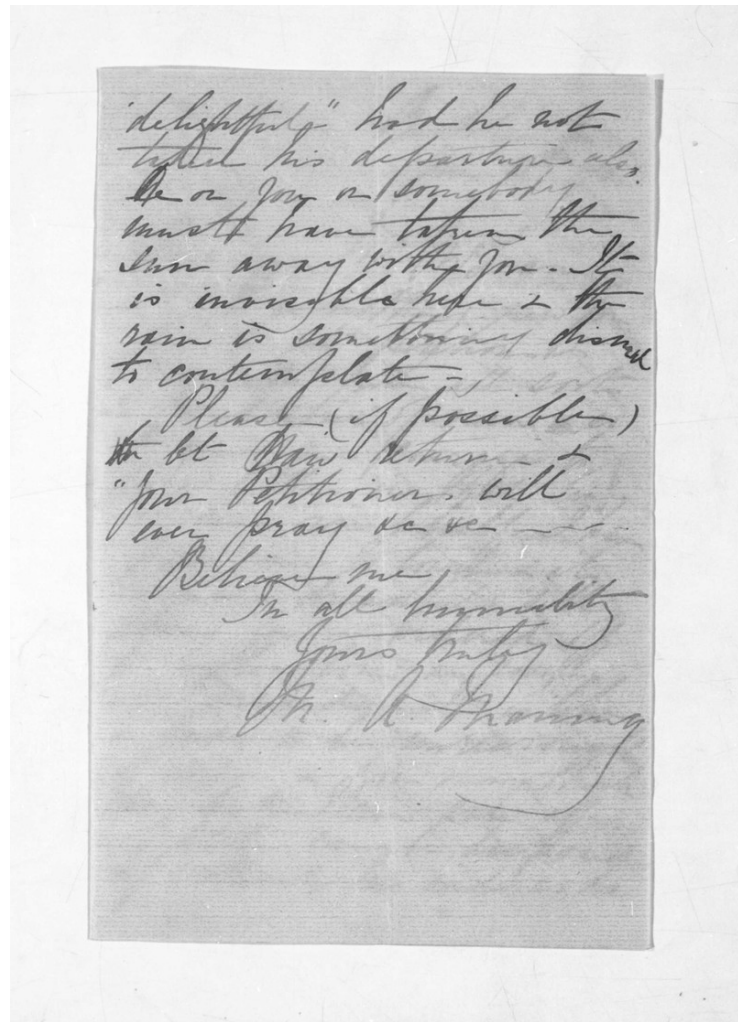 "delightful" had he not
taken his departure also.
He or you or somebody
must have taken the
sun away with you. It
is invisible here & the
rain is something dismal
to contemplate -
Please (if possible)
let return &
"your Petitioner" will
ever pray &c &c
Believe me
In all humility
Yours truly
M. A.